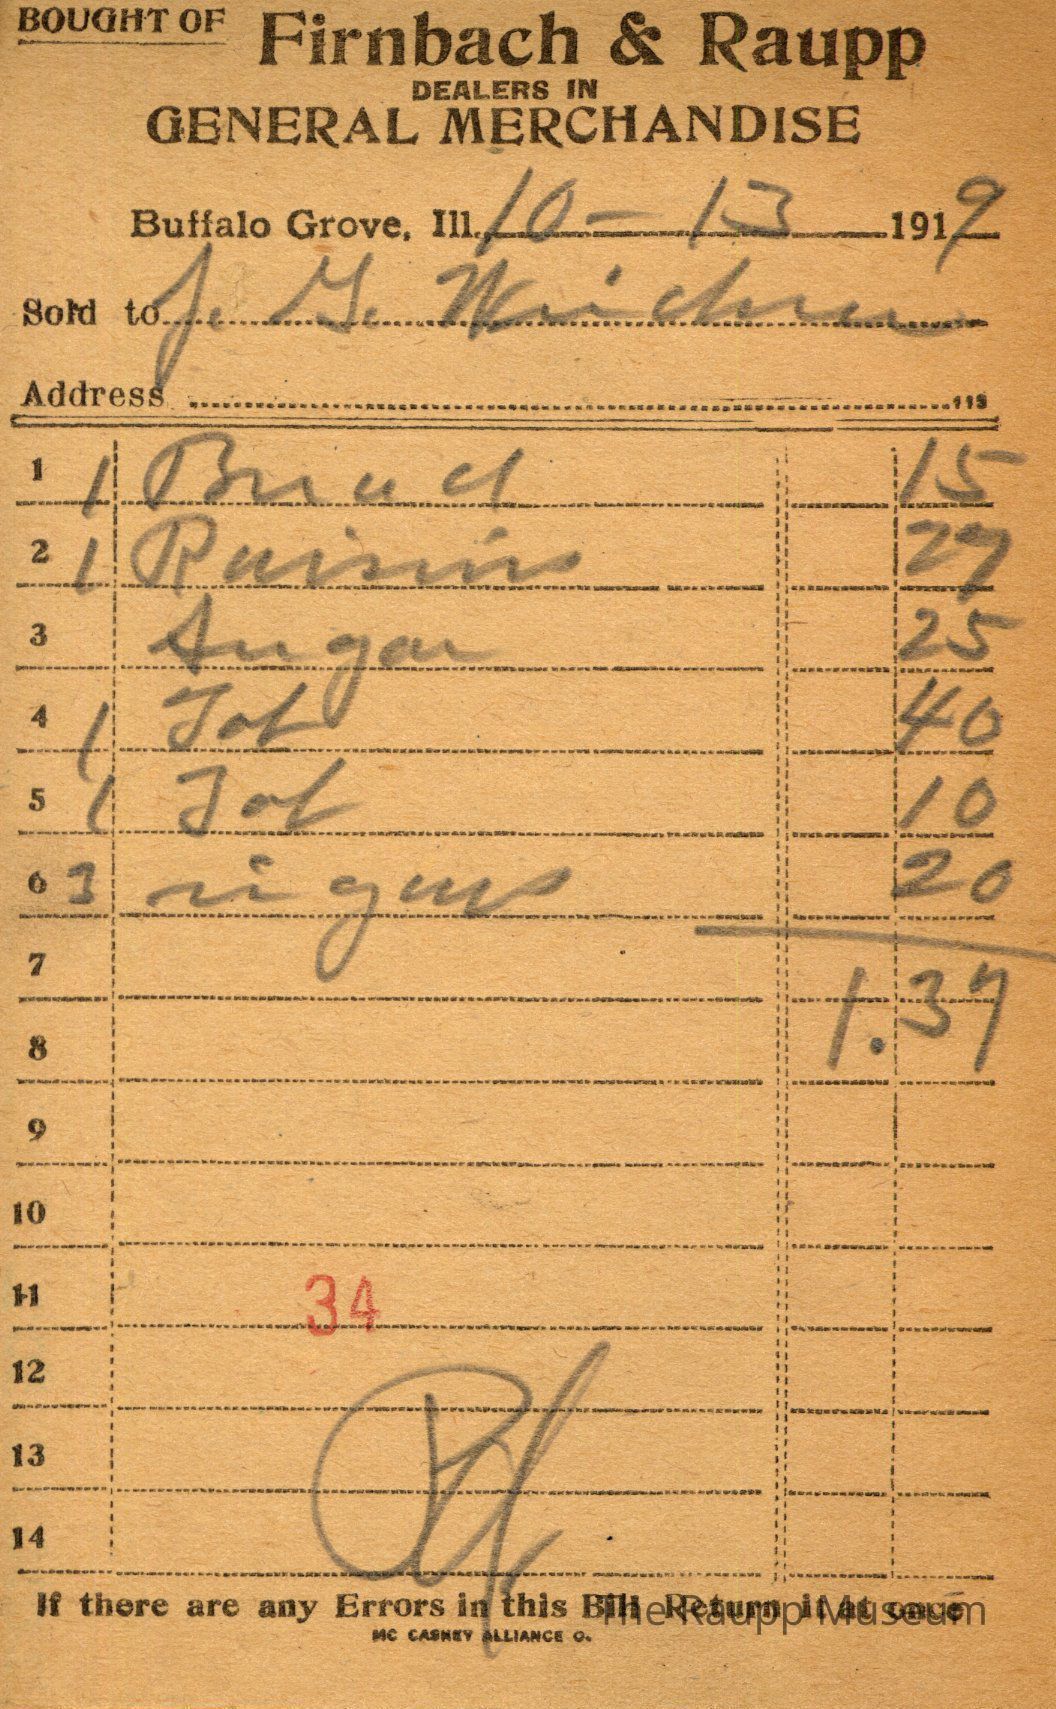 BOUGHT OF Firnbach & Raupp
DEALERS IN
GENERAL MERCHANDISE
Buffalo Grove, Ill. 10 - 13 1919
Sold to J. G.
Address 113
1 1 Bread 15
2 1 Raisins 27
3 Sugar 25
4 1 Tob 40
5 1 Tob 10
6 3 cigars 20
7 1.37
8
9
10
11 34
12
13
14
If there are any Errors in this Bill Return it at once
The Raupp Museum
MC CASKEY ALLIANCE O.